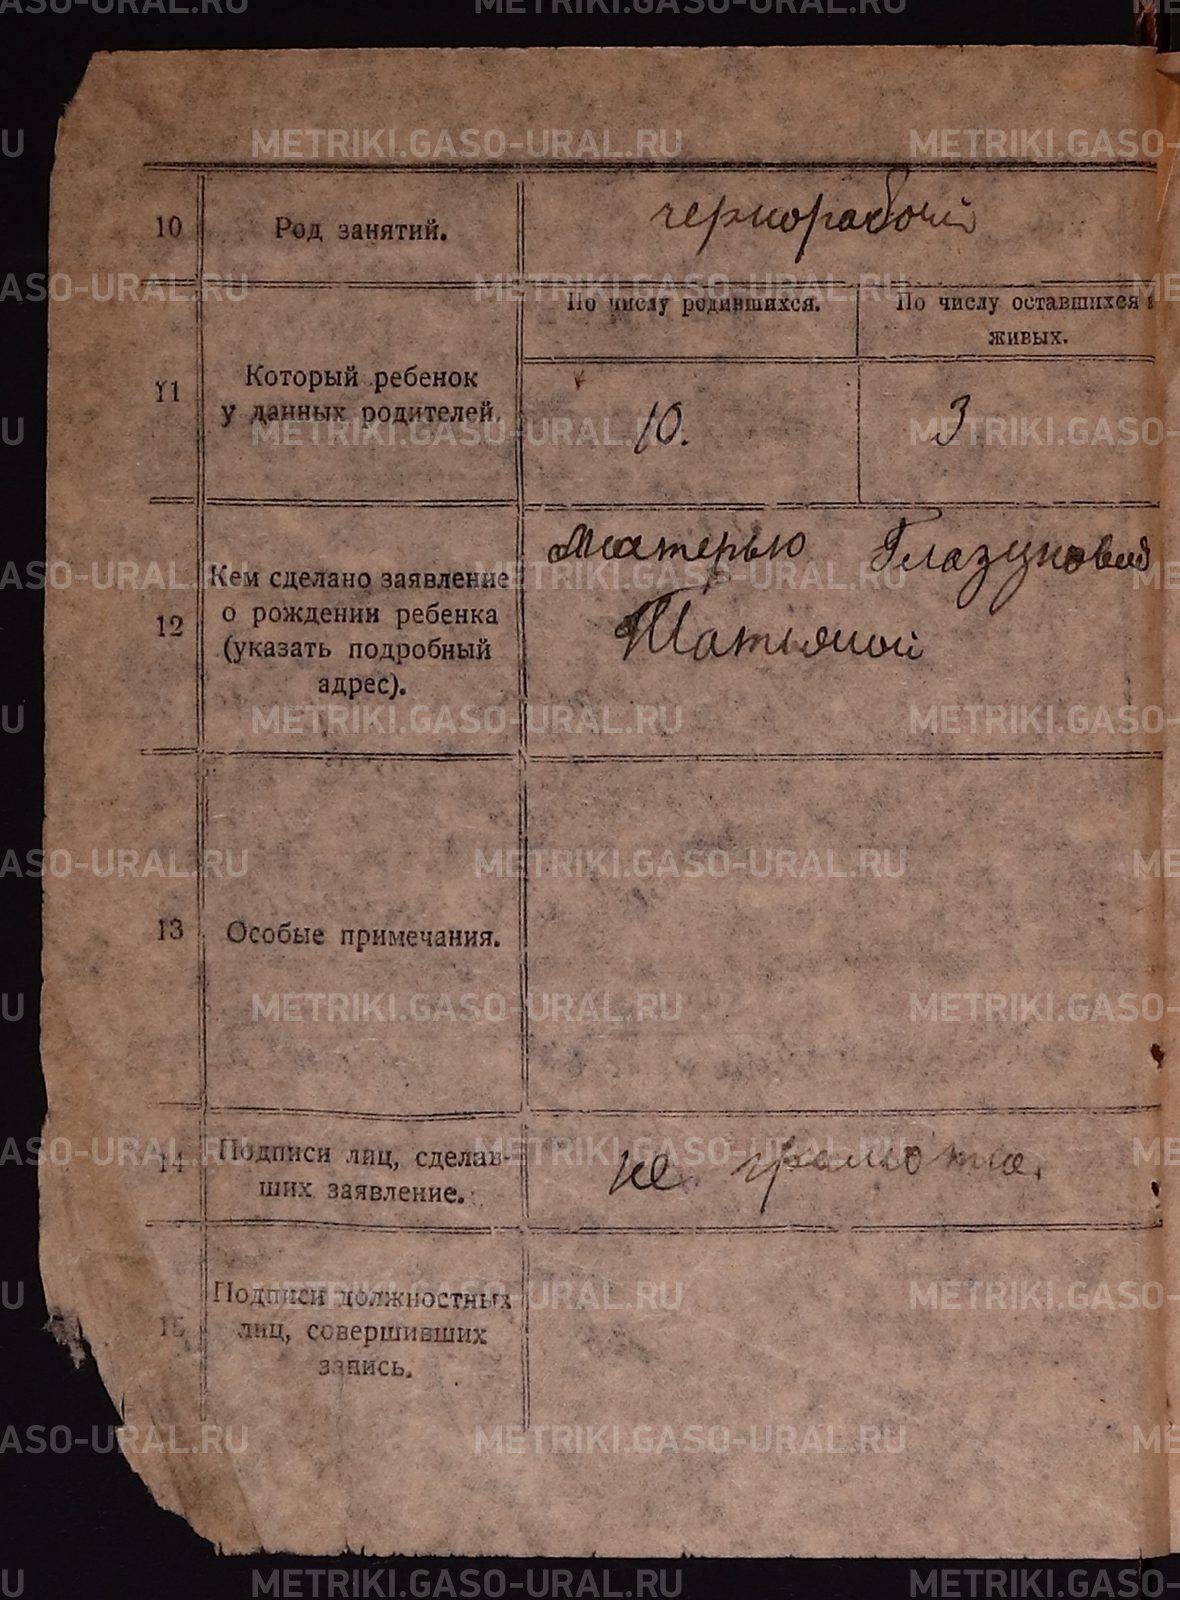 10 Род занятий. чернорабочий
По числу родившихся. По числу оставшихся
живых.
11 Который ребенок
у данных родителей.
10. 3
12 Кем сделано заявление
о рождении ребенка
(указать подробный
адрес).
Матерью Глазуновой
Татьяной
13 Особые примечания.
14 Подписи лиц, сделав-
ших заявление.
не грамотна.
15 Подписи должностных
лиц, совершивших
запись.
METRIKI.GASO-URAL.RU